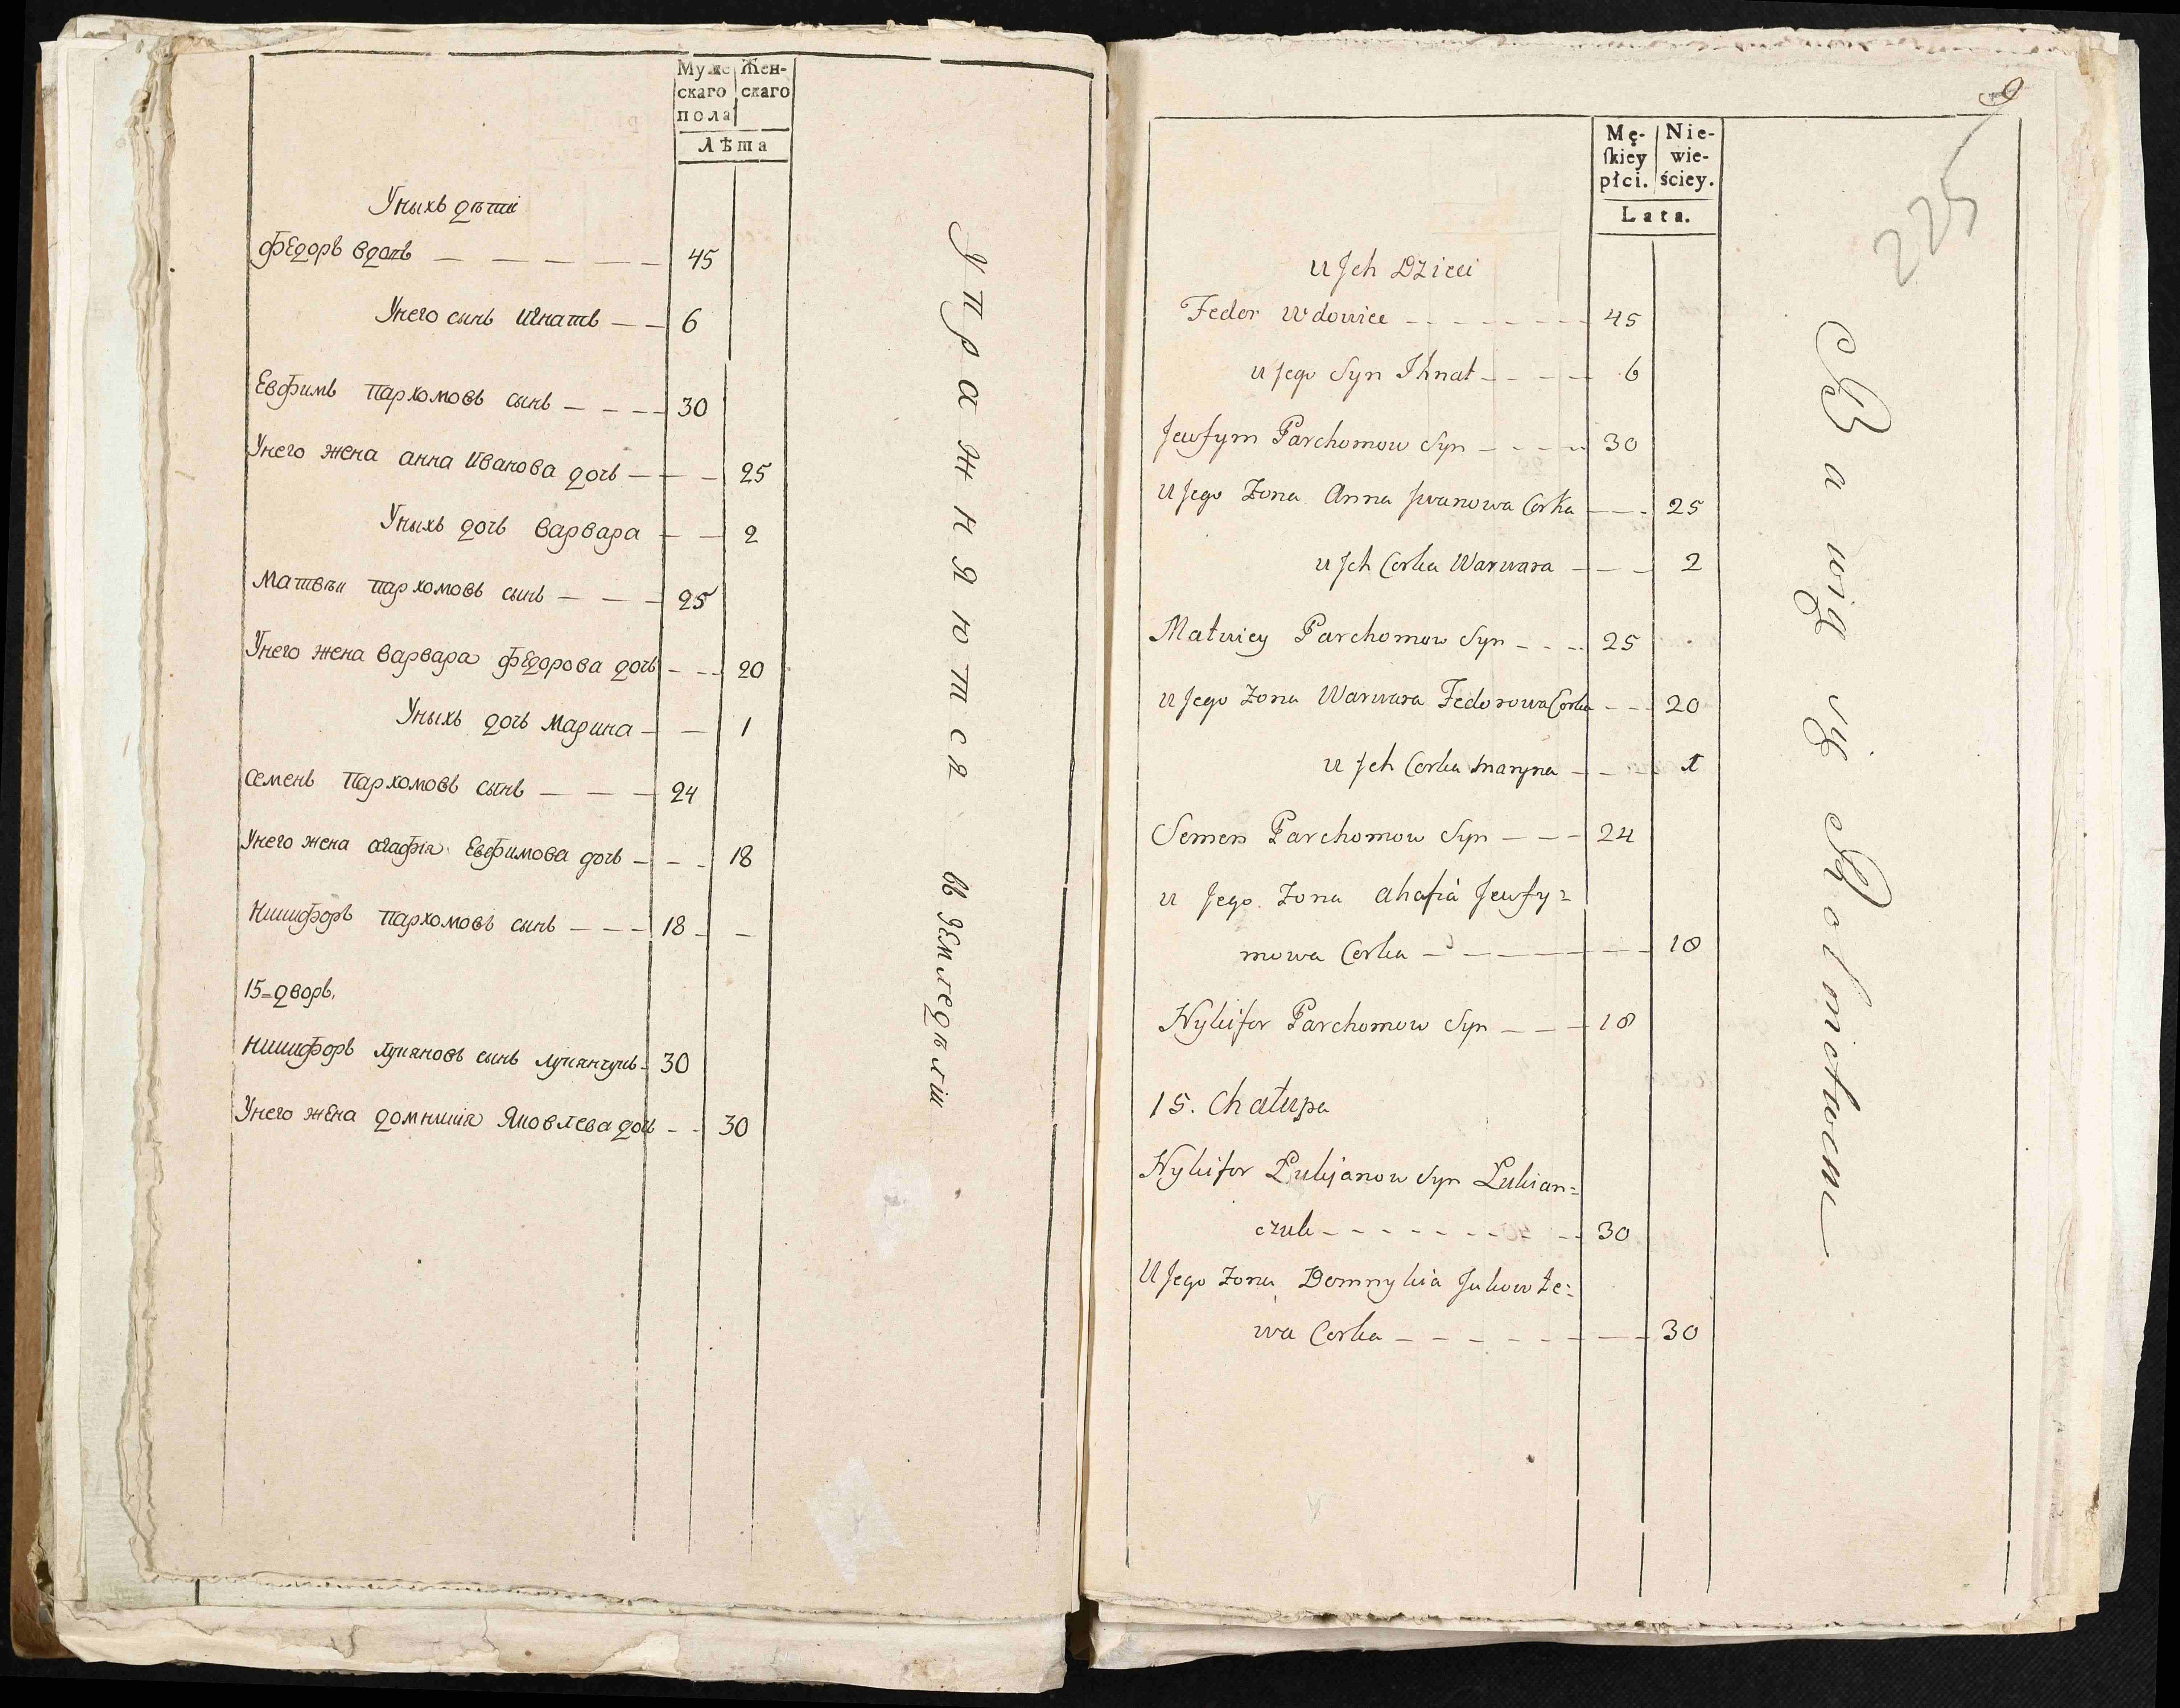 Муже Жен-
скаго скаго
пола
Лѣта
Уныхъ дѣти
Федоръ вдовъ — — — — — 45
Унего сынъ Игнатъ — — 6
Евфимъ Пархомовъ сынъ — — — — 30
Унего жена анна Иванова дочь — — — 25
Уныхъ дочь варвара — — 2
Матвѣи пархомовъ сынъ — — — 25
Унего жена варвара федорова дочь — — — 20
Уныхъ дочь Марина — — 1
Семенъ Пархомовъ сынъ — — — 24
Унего жена агафіа Евфимова дочь — — — 18
Никифоръ пархомовъ сынъ — — — 18 — —
15=дворъ.
Никифоръ лукяновъ сынъ лукянчукъ — 30
Унего жена домникиа Яковлева дочь — — 30
Упражняются вземледѣліи
9
225
Mę- Nie-
ſkiey wie-
płci. ściey.
Lata.
u Jch Dzieci
Fedor Wdowiec - - - - - - - 45
u Jego Syn Ihnat - - - - 6
Jewfym Parchomow Syn - - - - 30
u Jego Zona Anna Jwanowa Corka - - - 25
u Jch Corka Warwara - - - 2
Matwiey Parchomow Syn - - - 25
u Jego Zona Warwara Fedorowa Corka - - - 20
u Jch Corka Maryna - - 1
Semen Parchomow Syn - - - 24
u Jego Zona Ahafia Jewfy=
mowa Corka - - - - - - - 18
Nykifor Parchomow Syn - - - 18
15. Chałupa
Nykifor Lukjanow Syn Lukian=
czuk - - - - - - - - - 30
U Jego Zona Domnykia Jakowłe=
wa Corka - - - - - - - - 30
Bawią się Rolnictwem